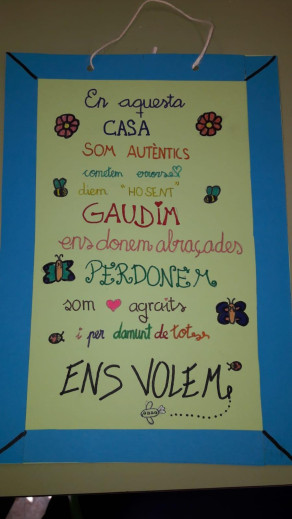 En aquesta
CASA
SOM AUTÈNTICS
cometem errors
diem "HO SENT"
GAUDIM
ens donem abraçades
PERDONEM
som agraïts
i per damunt de tot
ENS VOLEM